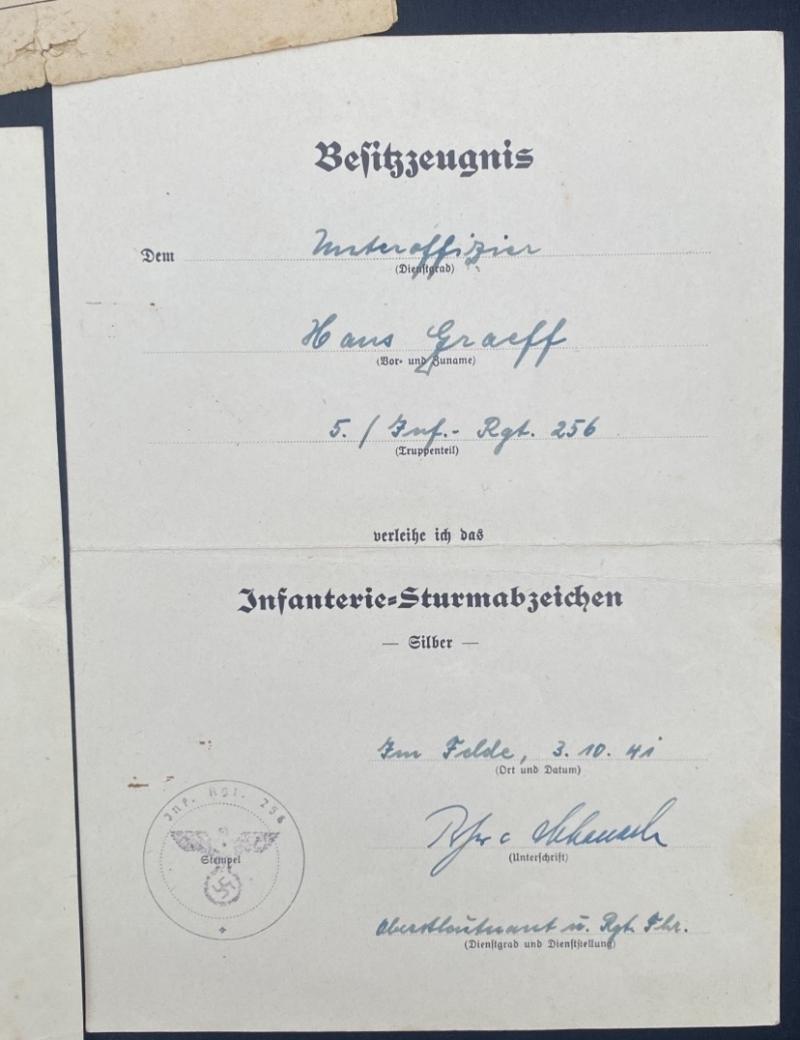 Besitzzeugnis
Dem Unteroffizier
(Dienstgrad)
Hans Graeff
(Vor- und Zuname)
5. / Inf.- Rgt. 256
(Truppenteil)
verleihe ich das
Infanterie=Sturmabzeichen
— Silber —
Im Felde, 3. 10. 41
(Ort und Datum)
(Unterschrift)
Oberstleutnant u. Rgt. Fhr.
(Dienstgrad und Dienststellung)
Inf. Rgt. 256
Stempel